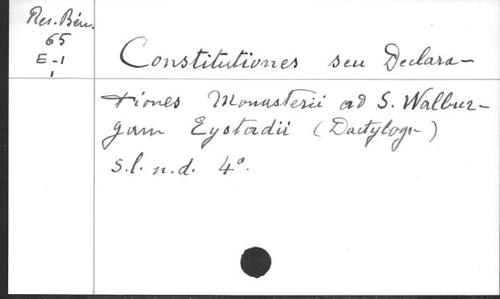 Res. Bén.
65
E-1
1
Constitutiones seu Declara-
tiones Monasterii ad S. Walbur-
gam Eystadii (Dactylogr.)
s.l. n.d. 4°.